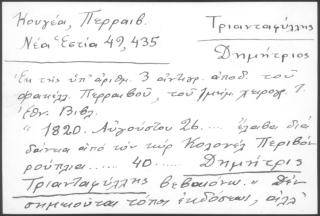 Κουγέα, Περραιβ.
Νέα Ἑστία 49, 435
Τριανταφύλλης
Δημήτριος
Ἐκ τῆς ὑπ' ἀριθμ. 3 ἀντιγρ. ἀποδ. τοῦ
φακέλλ. Περραιβοῦ, τοῦ Τμήμ. χειρογ. τ.
Ἐθν. Βιβλ.
" 1820. Αὐγούστου 26.... ἔλαβα διὰ
δάνεια ἀπὸ τὸν κὺρ Κολονέλ Περιβὸ
ρούπλια...... 40..... Δημήτρις
Τριανταφύλλης βεβαιώνω." Δὲν
σημειοῦται τόπος ἐκδόσεως, ἀλλ'